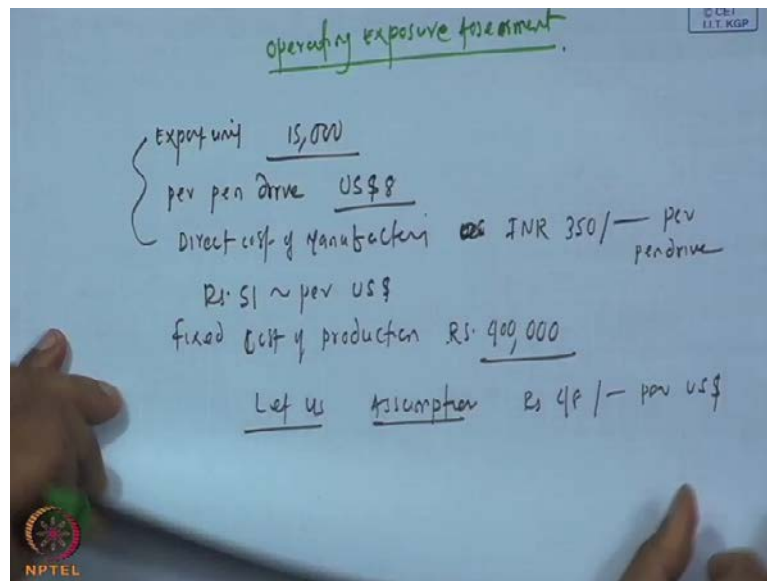 © CET
I.I.T. KGP
operating exposure Assessment.
Export unit 15,000
per pen drive US$8
Direct cost of Manufacturi INR 350/— per
pendrive
Rs. 51 ~ per US$
fixed cost of production Rs. 900,000
Let us Assumption Rs 48/— per US$
NPTEL